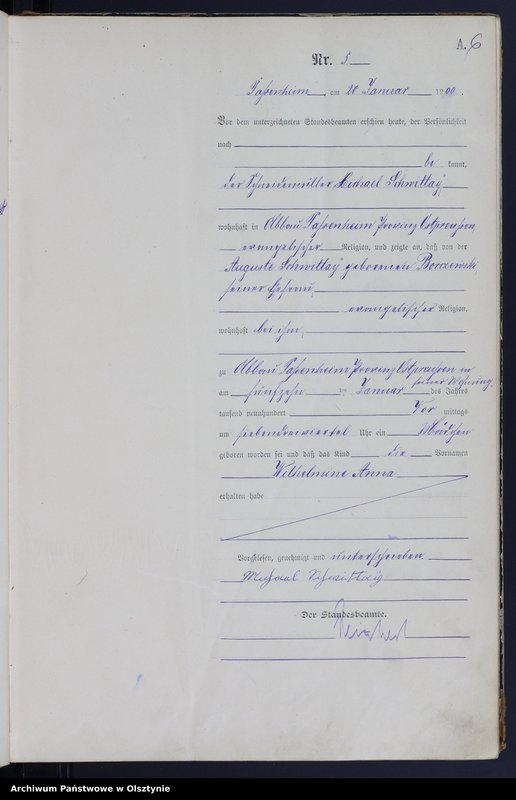 A. 6
Nr. 5
Passenheim, am 20 Januar 1900.
Vor dem unterzeichneten Standesbeamten erschien heute, der Persönlichkeit
nach
be kannt,
der Schneidemüller Michael Schwittay
wohnhaft in Abbau Passenheim Provinz Ostpreussen
evangelischer Religion, und zeigte an, daß von der
Auguste Schwittay geborenen Borczewski,
seiner Ehefrau,
evangelischer Religion,
wohnhaft bei ihm,
zu Abbau Passenheim Provinz Ostpreussen in
seiner Wohnung,
am fünfzehn ten Januar des Jahres
tausend neunhundert Vor mittags
um siebendreiviertel Uhr ein Mädchen
geboren worden sei und daß das Kind die Vornamen
Wilhelmine Anna
erhalten habe
Vorgelesen, genehmigt und unterschrieben.
Michael Schwittay
Der Standesbeamte.
Archiwum Państwowe w Olsztynie